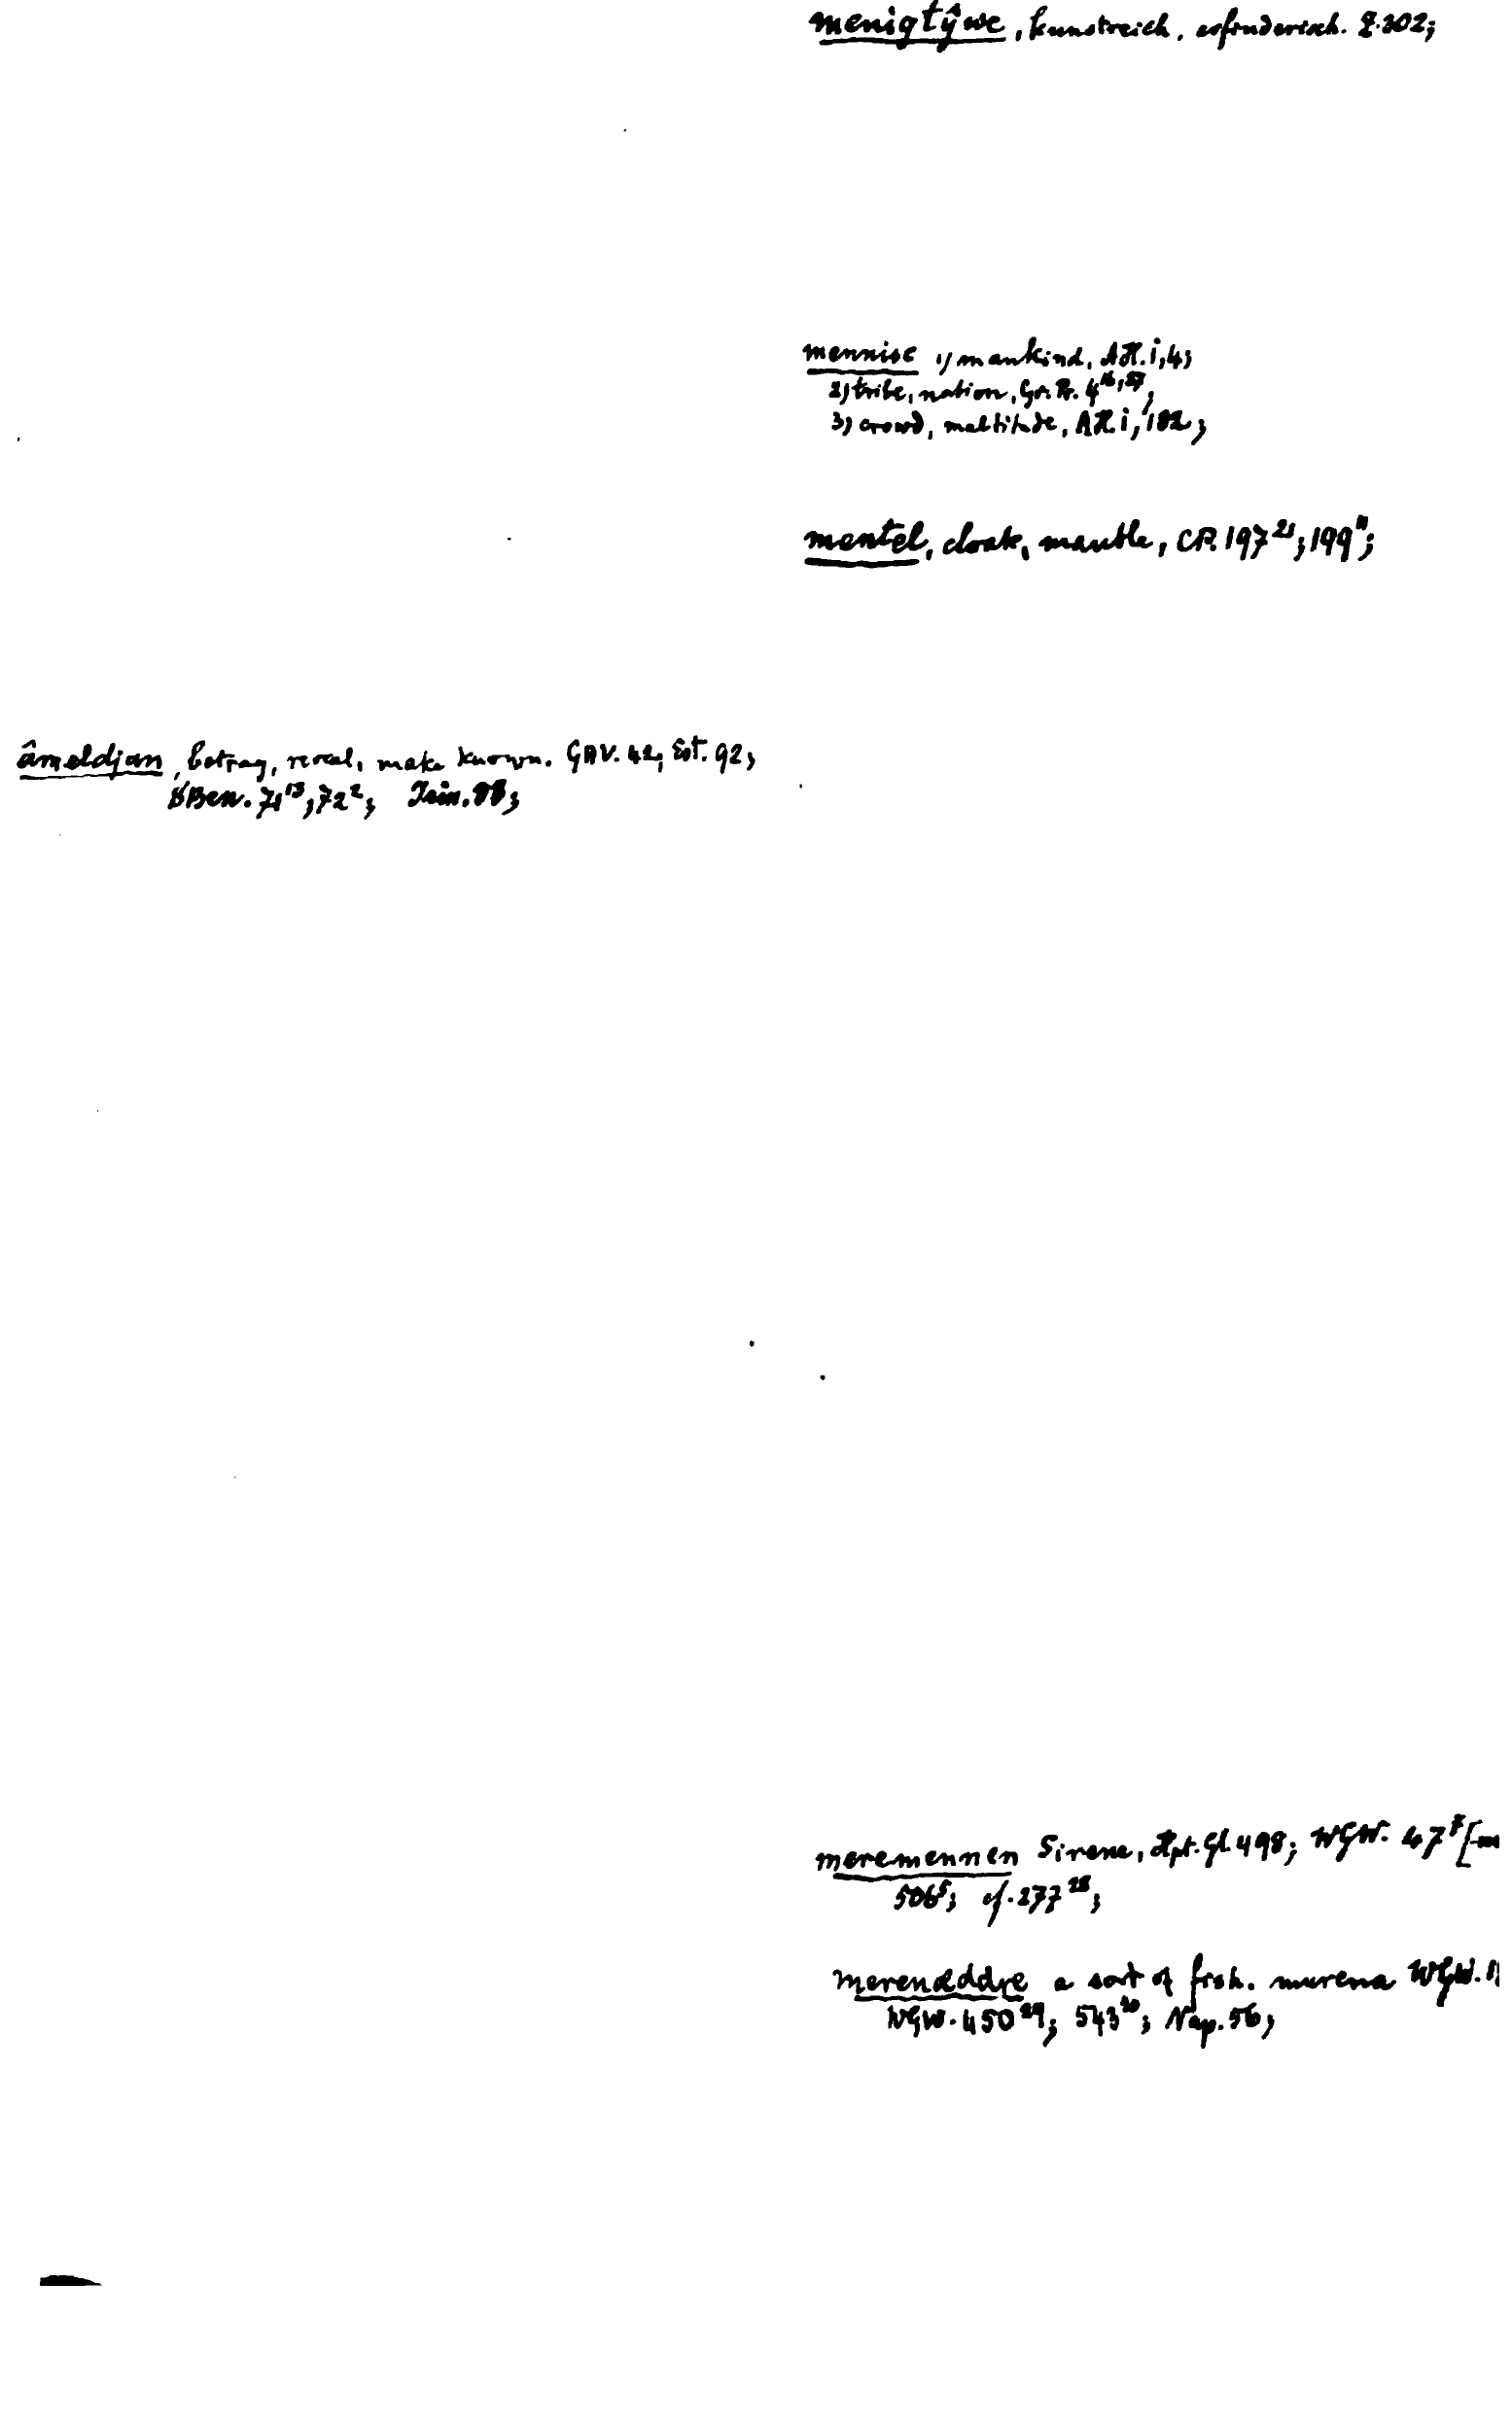 menigtŷwe, kunstreich, erfinderisch. Z. 302;
mennisc 1) mankind, ÆH. i, 4;
2) tribe, nation, Gr. Pr. 4
3) crowd, multitude, ÆH. i, 182;
mentel, cloak, mantle, CP. 197²¹; 199¹¹;
âmeldjan, betray, reveal, make known. GAV. 42; 92;
Ben. 71¹³, 72²;
meremennen Sirene, Hpt. Gl. 498; WGW. 47⁷ [-m
506⁵; cf. 277²⁸;
merenæddre a sort of fish. murena WGW.
WGW. 450²⁹; 543²⁰; Nap. 56;